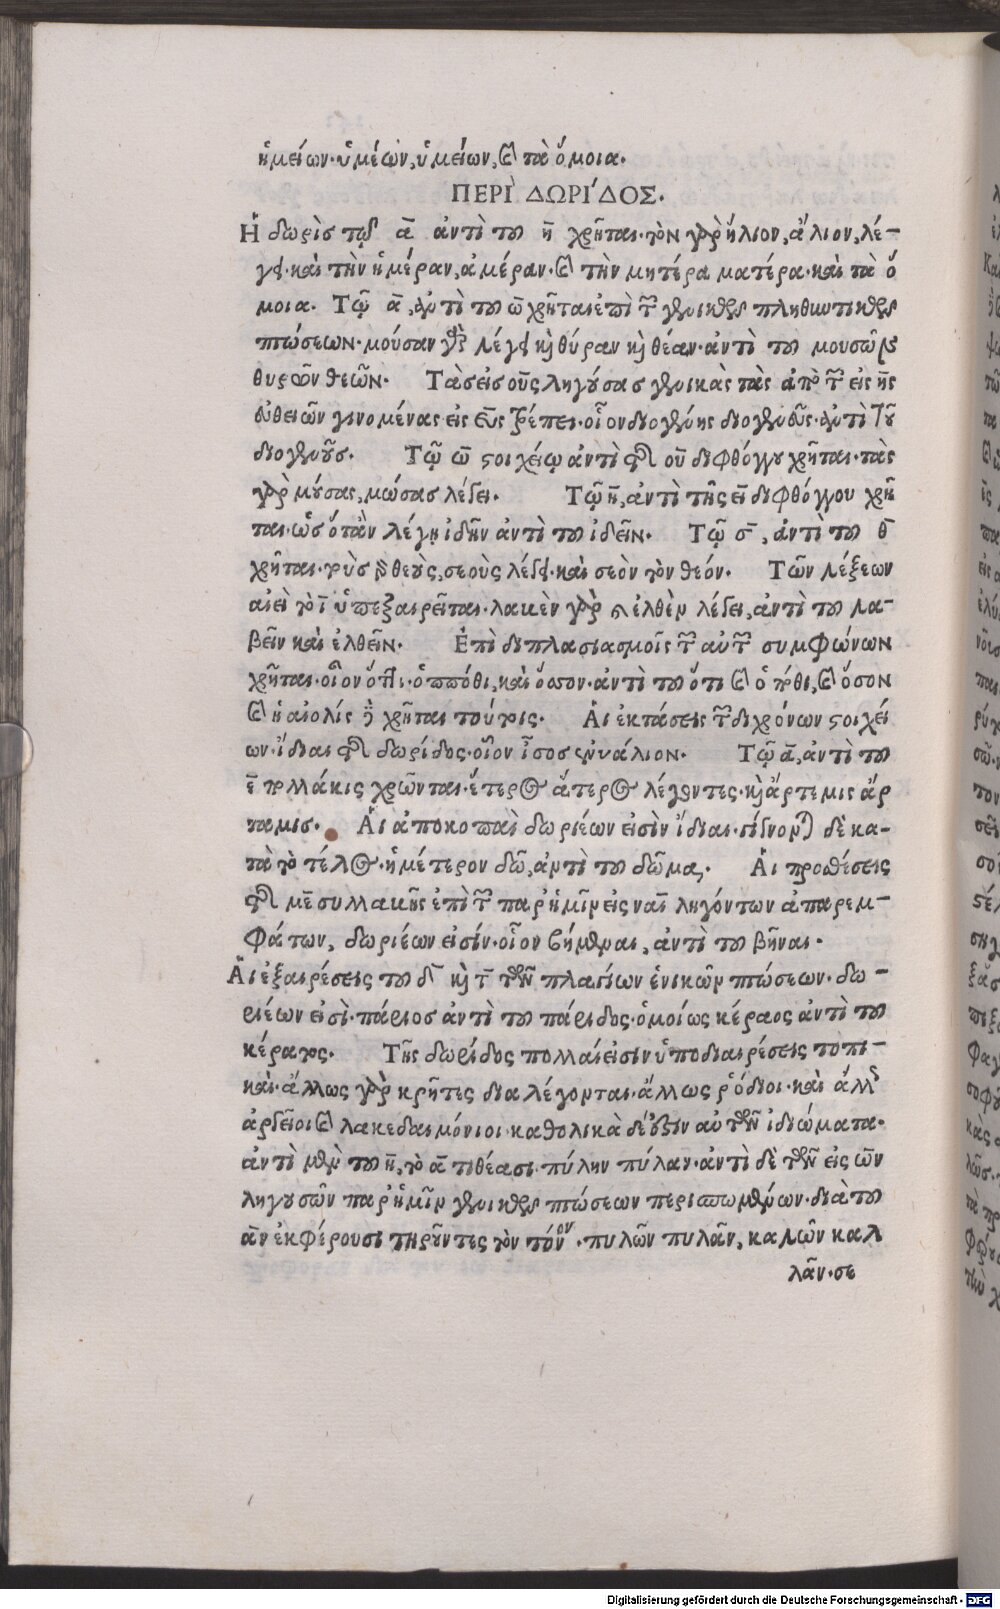 ἡμείων· ὑμέων, ὑμείων, καὶ τὰ ὅμοια.
ΠΕΡΙ ΔΩΡΙΔΟΣ.
Ἡ δωρὶς τῷ ᾱ ἀντὶ τοῦ η̄ χρῆται· τὸν γὰρ ἥλιον, ἅλιον, λέ-
γει· καὶ τὴν ἡμέραν, ἁμέραν· καὶ τὴν μητέρα ματέρα· καὶ τὰ ὅ
μοια. Τῷ ᾱ, ἀντὶ τοῦ ω̄ χρῆται ἐπὶ τῶν γενικῆς πληθυντικῆς
πτώσεων· μούσαν γὰρ λέγει καὶ θύραν καὶ θέαν· ἀντὶ τοῦ μουσῶν καὶ
θυρῶν θεῶν. Τὰς εἰς οῦς ληγούσας γενικὰς τὰς ἀπὸ τῶν εἰς ης
εὐθειῶν γινομένας εἰς εῦς τρέπει· οἷον διογένης διογενεῦς· ἀντὶ τοῦ
διογενοῦς. Τῷ ω̄ στοιχείῳ ἀντὶ τῆς οῦ διφθόγγου χρῆται· τὰς
γὰρ μούσας, μώσας λέγει. Τῷ η̄, ἀντὶ τῆς εῖ διφθόγγου χρῆ
ται· ὡς ὅταν λέγῃ ἰδῆν ἀντὶ τοῦ ἰδεῖν. Τῷ σ̄, ἀντὶ τοῦ θ̄
χρῆται· τοὺς δὲ θεοὺς, σεοὺς λέγει· καὶ σεὸν τὸν θεόν. Τῶν λέξεων
αἰεὶ τὸ ῑ ὑπεξαιρεῖται· λακὲν γὰρ καὶ ἐλθὲν λέγει, ἀντὶ τοῦ λα-
βεῖν καὶ ἐλθεῖν. Ἐπὶ διπλασιασμοῖς τῶν αὐτῶν συμφώνων
χρῆται· οἷον ὅττι· ὁππόθι, καὶ ὅσσον· ἀντὶ τοῦ ὅτι καὶ ὁπόθι, καὶ ὅσον
καὶ ἡ αἰολίς δὲ χρῆται τούτοις. Αἱ ἐκτάσεις τῶν διχρόνων στοιχεί
ων· ἴδιαι τῆς δωρίδος· οἷον ἶσος ἐνυάλιον. Τῷ ᾱ, ἀντὶ τοῦ
ε̄ πολλάκις χρῶνται· ἕτερος ἅτερος λέγοντες· καὶ ἄρτεμις ἄρ
ταμις. Αἱ ἀποκοπαὶ δωριέων εἰσὶν ἴδιαι· γίνονται δὲ κα-
τὰ τὸ τέλος· ἡμέτερον δῶ, ἀντὶ τοῦ δῶμα. Αἱ προσθέσεις
τῆς με̄ συλλαβῆς ἐπὶ τῶν παρ' ἡμῖν εἰς ναῑ ληγόντων ἀπαρεμ-
φάτων, δωριέων εἰσίν· οἷον βήμεναι, ἀντὶ τοῦ βῆναι.
Αἱ ἐξαιρέσεις τοῦ δ̄ καὶ τ̄ τῶν πλαγίων ἑνικῶν πτώσεων· δω-
ριέων εἰσὶ· πάριος ἀντὶ τοῦ πάριδος· ὁμοίως κέραος ἀντὶ τοῦ
κέρατος. Τῆς δωρίδος πολλαί εἰσιν ὑποδιαιρέσεις τοπι-
καὶ· ἄλλως γὰρ κρῆτες διαλέγονται· ἄλλως ῥόδιοι· καὶ ἄλλως
ἀργεῖοι καὶ λακεδαιμόνιοι· καθολικὰ δέ ἐστιν αὐτῶν ἰδιώματα·
ἀντὶ μὲν τοῦ η̄, τὸ ᾱ τιθέασι· πύλην πύλαν· ἀντὶ δὲ τῶν εἰς ῶν
ληγουσῶν παρ' ἡμῖν γενικῆς πτώσεων περισπωμένων· διὰ τοῦ
ᾶν ἐκφέρουσι τηροῦντες τὸν τόνον· πυλῶν πυλᾶν, καλῶν καλ
λᾶν· σε
Digitalisierung gefördert durch die Deutsche Forschungsgemeinschaft - DFG